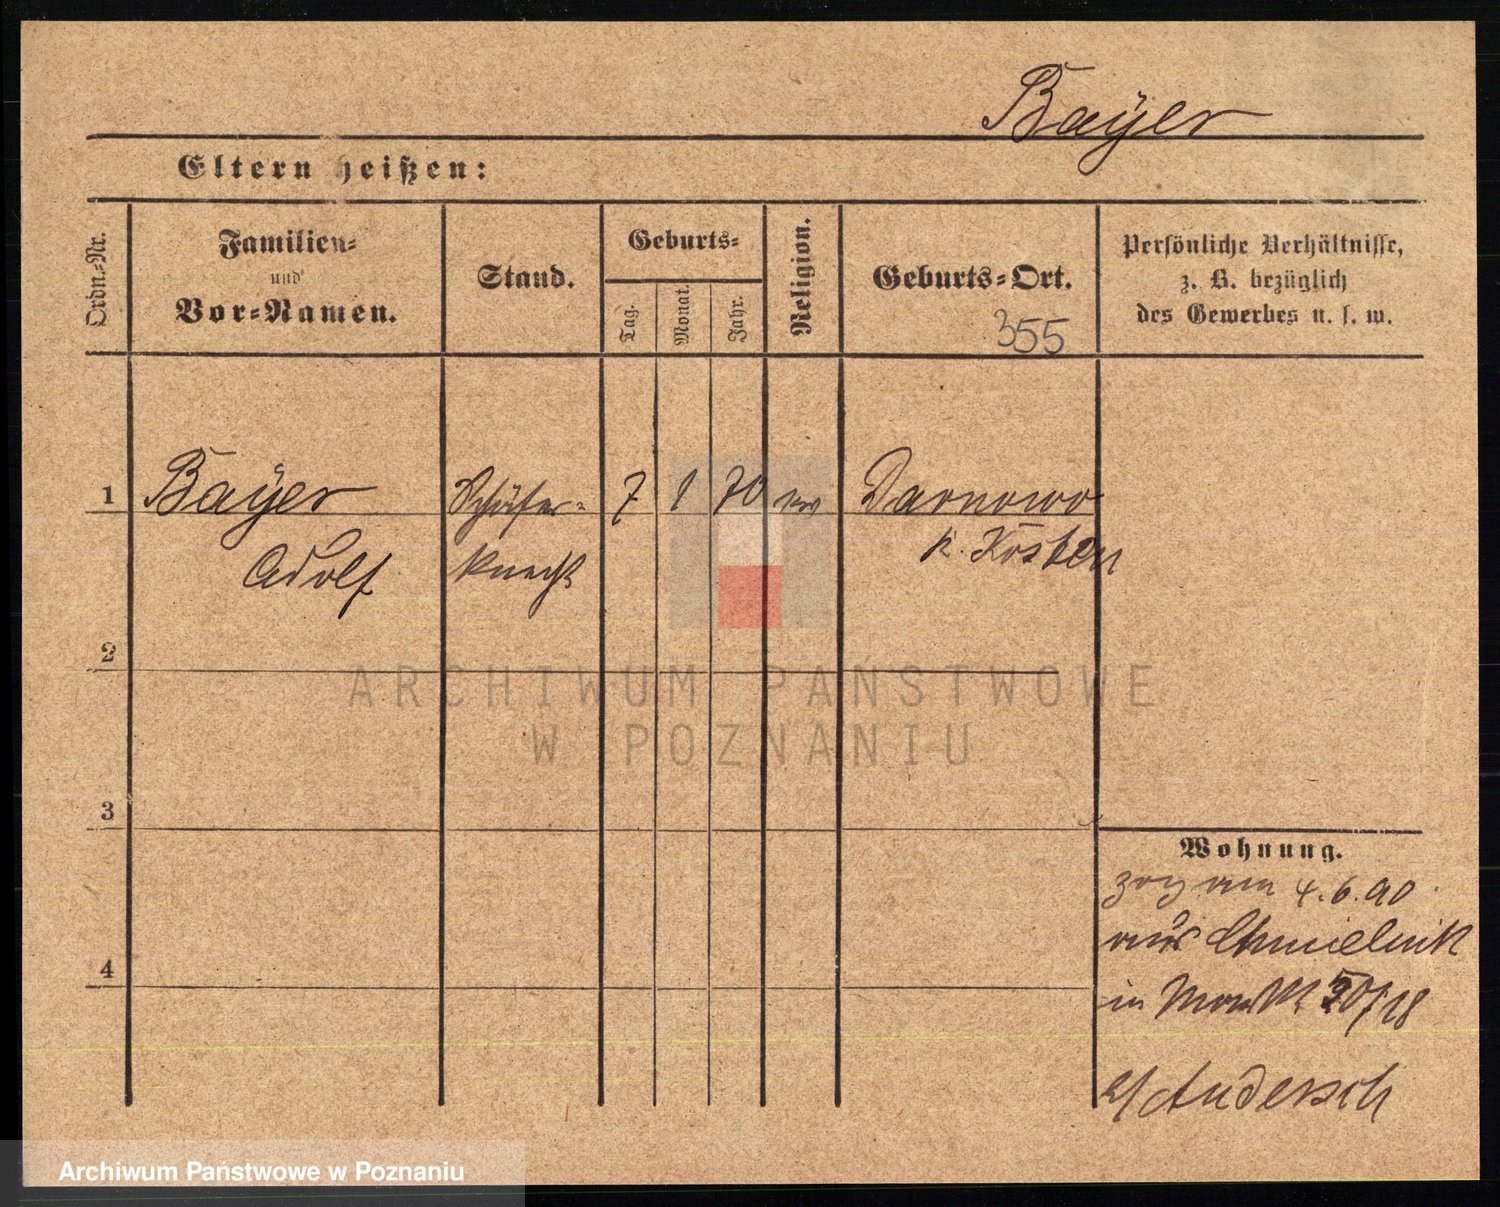 Baÿer
Eltern heißen:
Ordn.-Nr.
Familien-
und
Vor-Namen.
Stand.
Geburts-
Tag.
Monat.
Jahr.
Religion.
Geburts-Ort.
355
Persönliche Verhältnisse,
z. B. bezüglich
des Gewerbes u. s. w.
1 Baÿer Schäfer- 7 1 70 Darnowo
Adolf knecht k. Kosten
2
ARCHIWUM PAŃSTWOWE
W POZNANIU
3
4
Wohnung.
zog am 4.6.90
aus Chmielnik
in
b/ Andersch
Archiwum Państwowe w Poznaniu